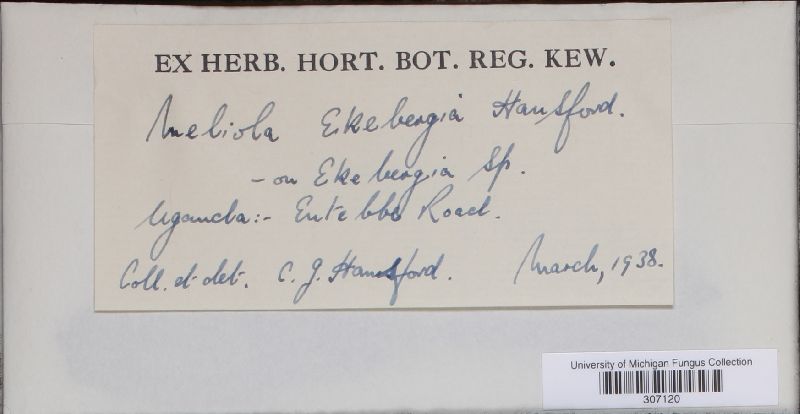 EX HERB. HORT. BOT. REG. KEW.
Meliola Ekebergia Hansford.
- on Ekebergia sp.
Uganda:- Entebbe Road.
Coll. et det. C. G. Hansford. March, 1938.
University of Michigan Fungus Collection
307120